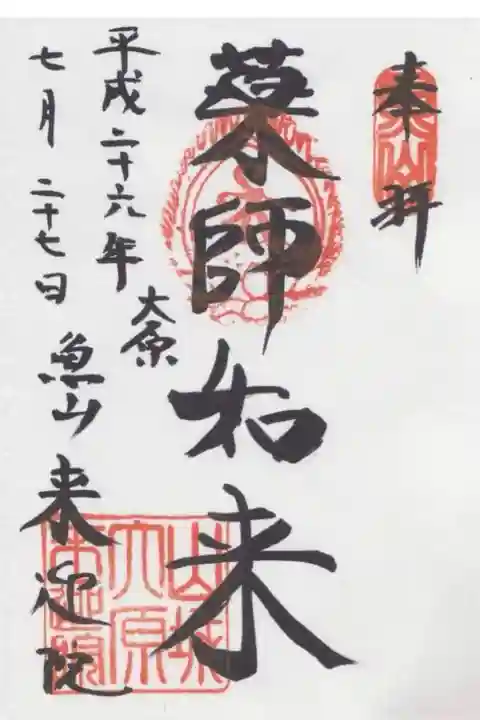 奉拝
薬師如来
大原
平成二十六年
七月二十七日
魚山来迎院
魚山
山城
大原
来迎院